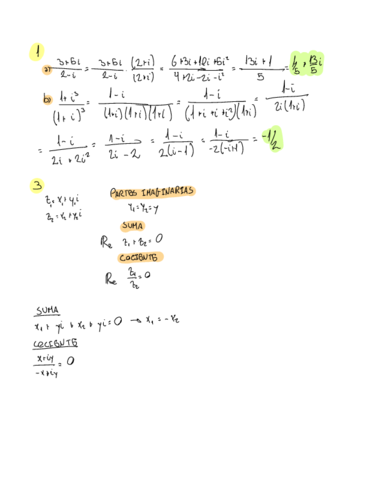 1
a) 3+5i/2-i = 3+5i/2-i · (2+i)/(2+i) = 6+3i+10i+5i²/4+2i-2i-i² = 13i+1/5 = 1/5 + 13i/5
b) 1+i³/(1+i)³ = 1-i/(1+i)(1+i)(1+i) = 1-i/(1+i+i+i²)(1+i) = 1-i/2i(1+i)
= 1-i/2i+2i² = 1-i/2i-2 = 1-i/2(i-1) = 1-i/-2(-i+1) = -1/2
3
z₁=x₁+y₁i
z₂=x₂+y₂i
PARTES IMAGINARIAS
Y₁=Y₂=y
SUMA
Re z₁+z₂=0
COCIENTE
Re z₁/z₂=0
SUMA
x₁ + yi + x₂ + yi = 0 → x₁ = -x₂
COCIENTE
x+iy/-x+iy = 0